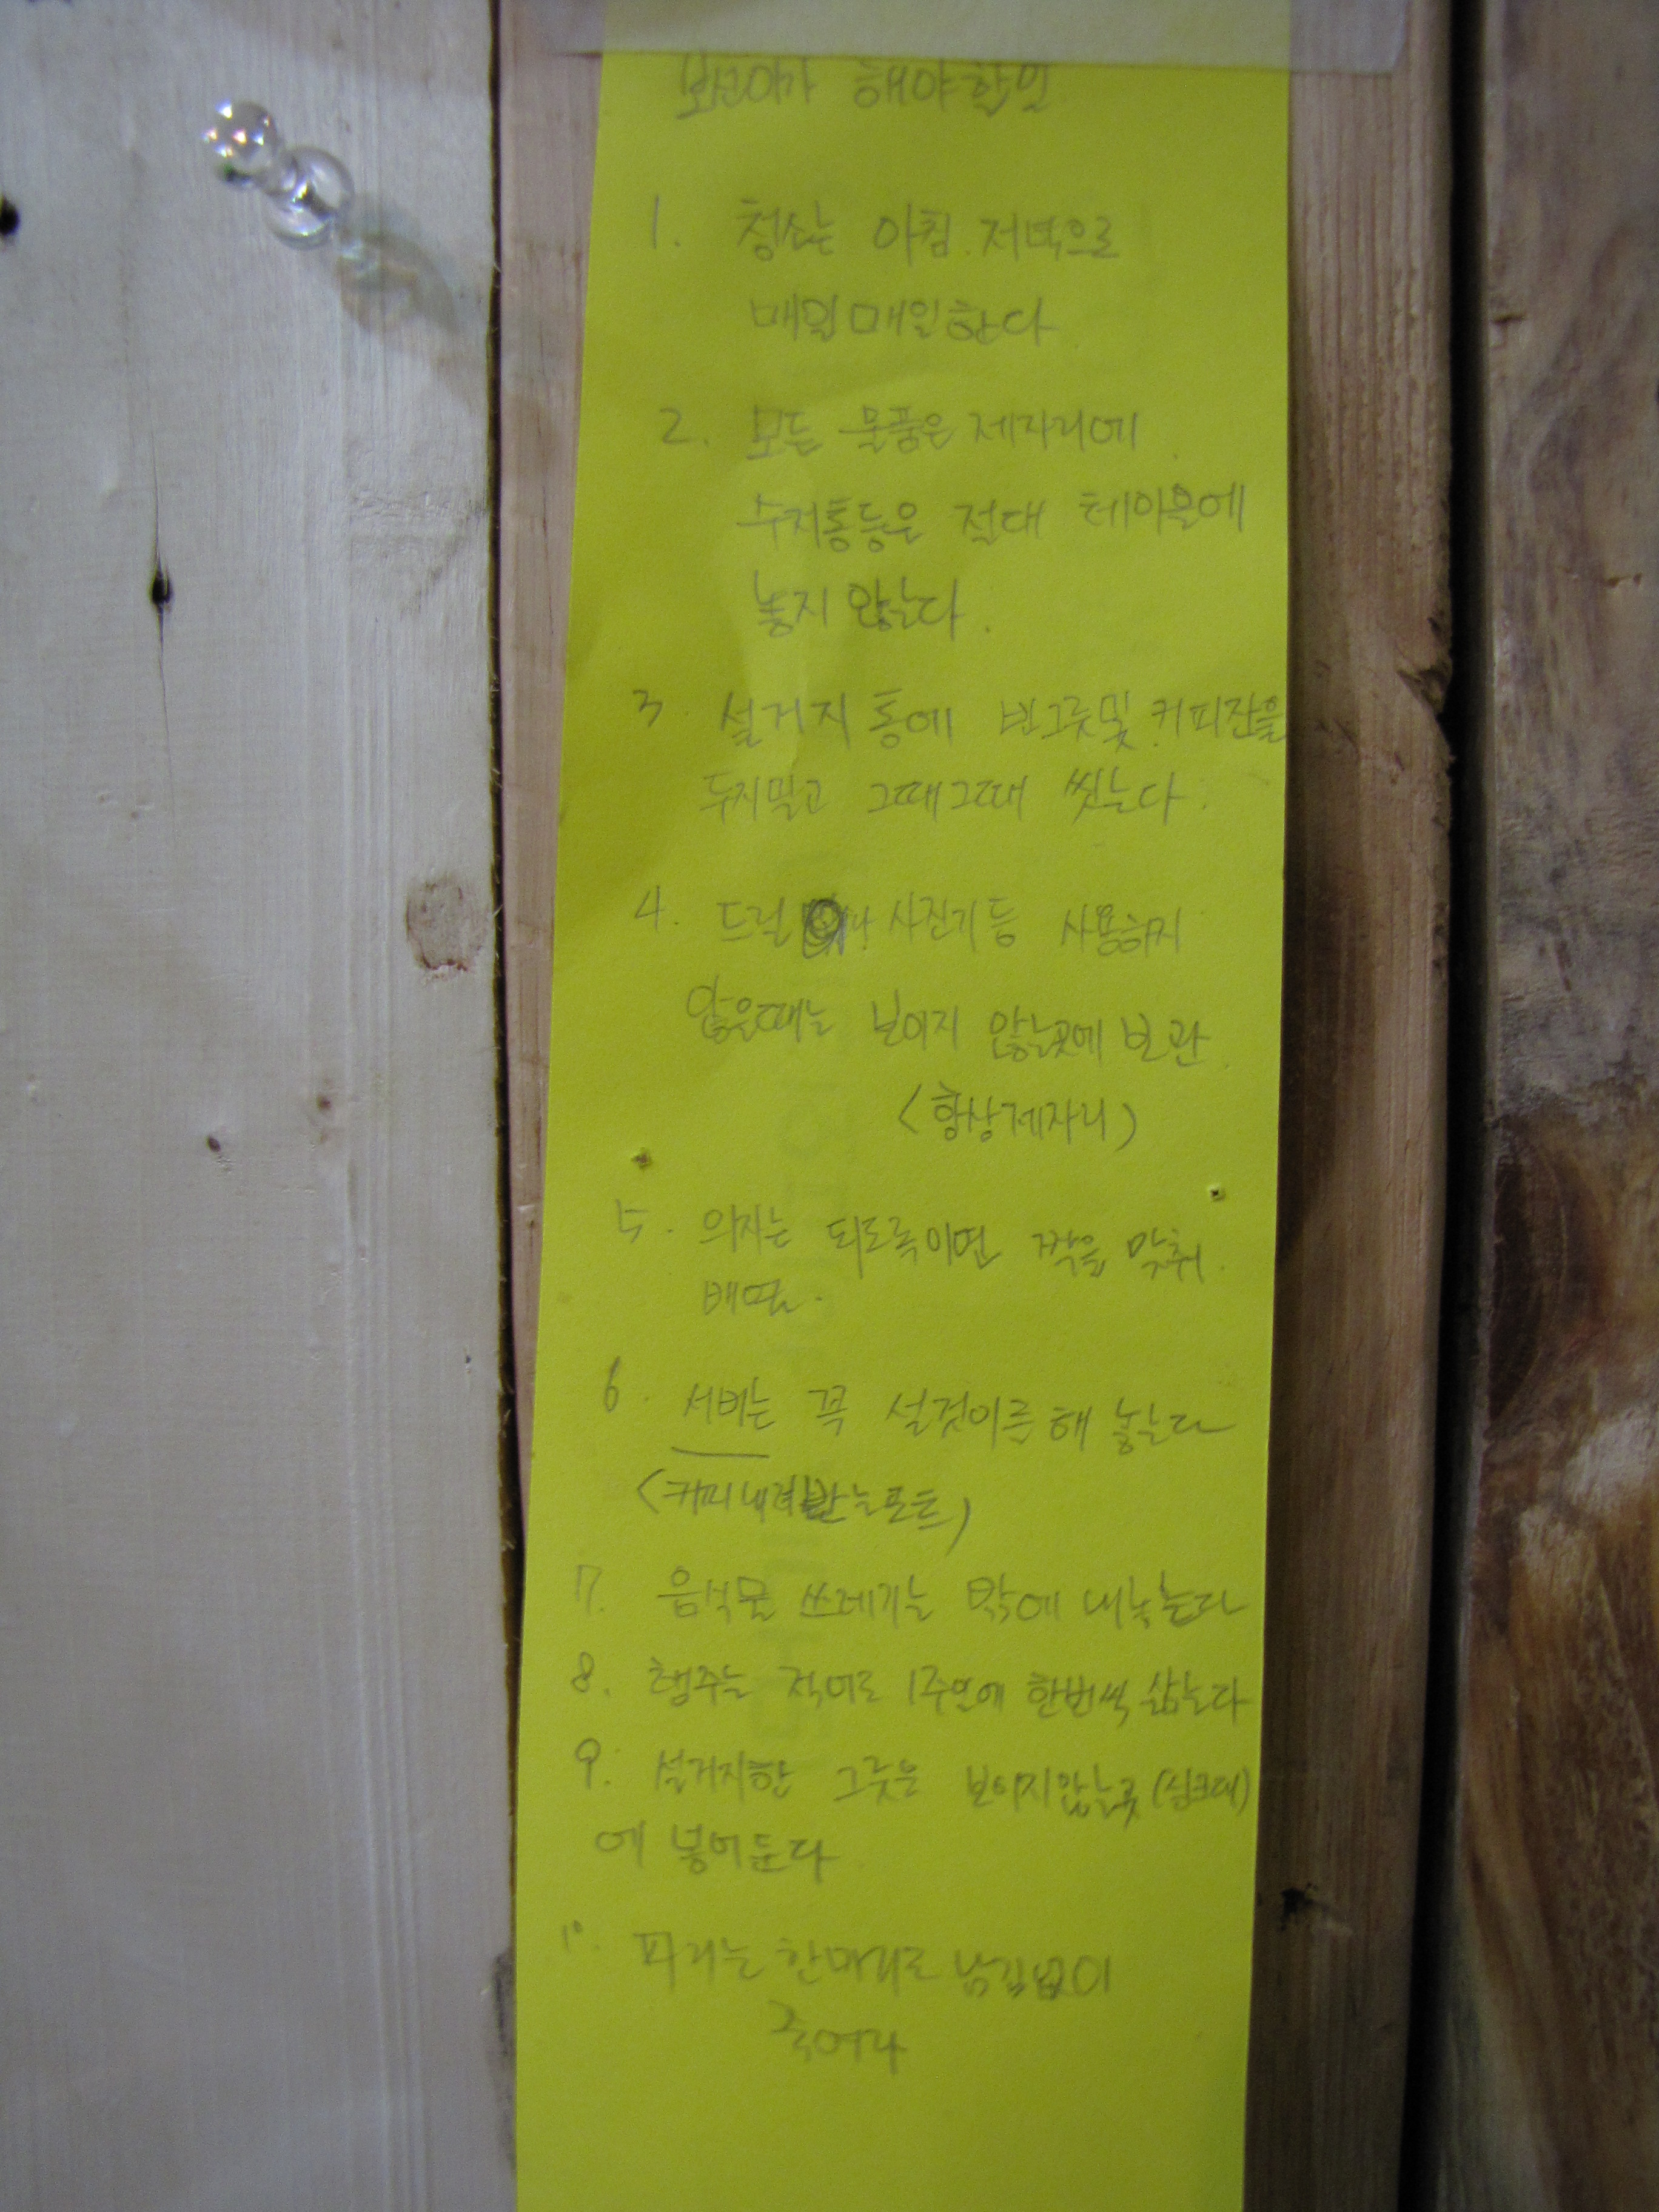 해야할일
1. 청소는 아침.저녁으로
매일매일한다
2. 모든 물품은 제자리에
수저통등은 절대 테이블에
놓지 않는다.
3 설거지통에 빈그릇및 커피잔을
두지말고 그때그때 씻는다.
4. 드릴 사진기등 사용하지
않은때는 보이지 않는곳에 보관
(항상제자리)
5. 의자는 되도록이면 짝을 맞춰
배열.
6. 서버는 꼭 설것이를 해 놓는다
(커피내려받는포트)
7. 음식물 쓰레기는 밖에 내놓는다
8. 행주는 적어도 1주일에 한번씩 삶는다
9. 설거지한 그릇은 보이지않는곳(싱크대)
에 넣어둔다
10. 파리는 한마리로 남김없이
죽여라